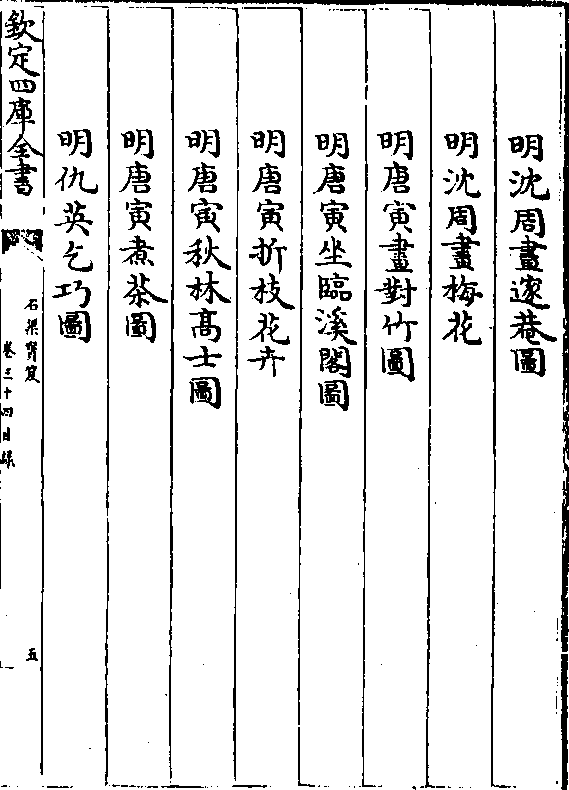 明沈周畫邃菴圖
明沈周畫梅花
明唐寅畫對竹圖
明唐寅坐臨溪閣圖
明唐寅折枝花卉
明唐寅秋林髙士圖
明唐寅煮茶圖
明仇英乞巧圖
欽定四庫全書
石渠寶笈
卷三十四目録
五